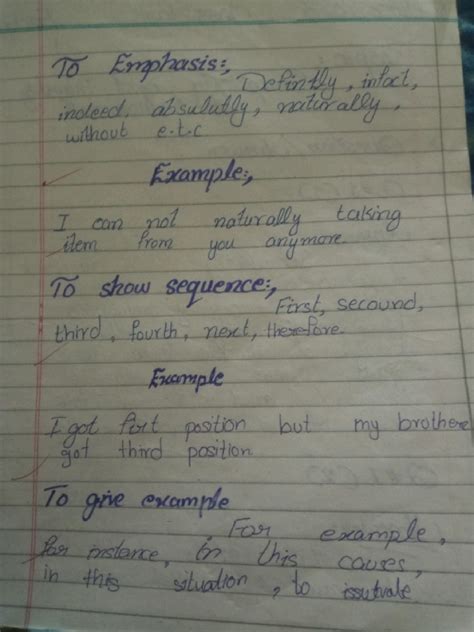 To Emphasis:,
Defintly, infact,
indeed, absulutly, naturally,
without e.t.c
Example:,
I can not naturally taking
item from you anymore.
To show sequence:,
First, secound,
third, fourth, next, therefore.
Example
I got firt position but my brothere
got third position.
To give example
, For example,
for instance, in this causes,
in this situation, to issutvate